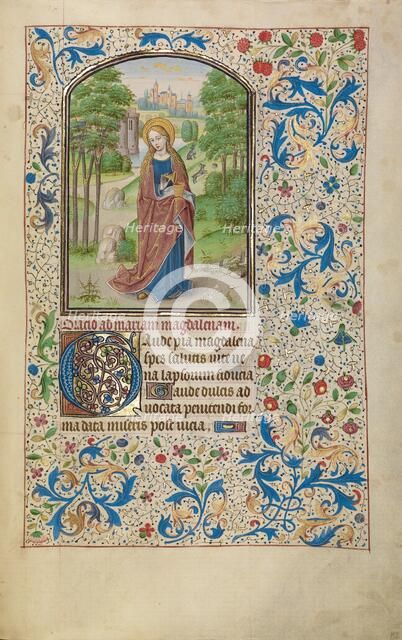 Oracio ad mariam magdalenam.
Gaude pia magdalena
spes salutis vite ve
na lapsorum fiducia
Gaude dulcis ad
vocata penitendi for
ma data miseris post vicia.
Heritage
Heritage
Heritage
Heritage